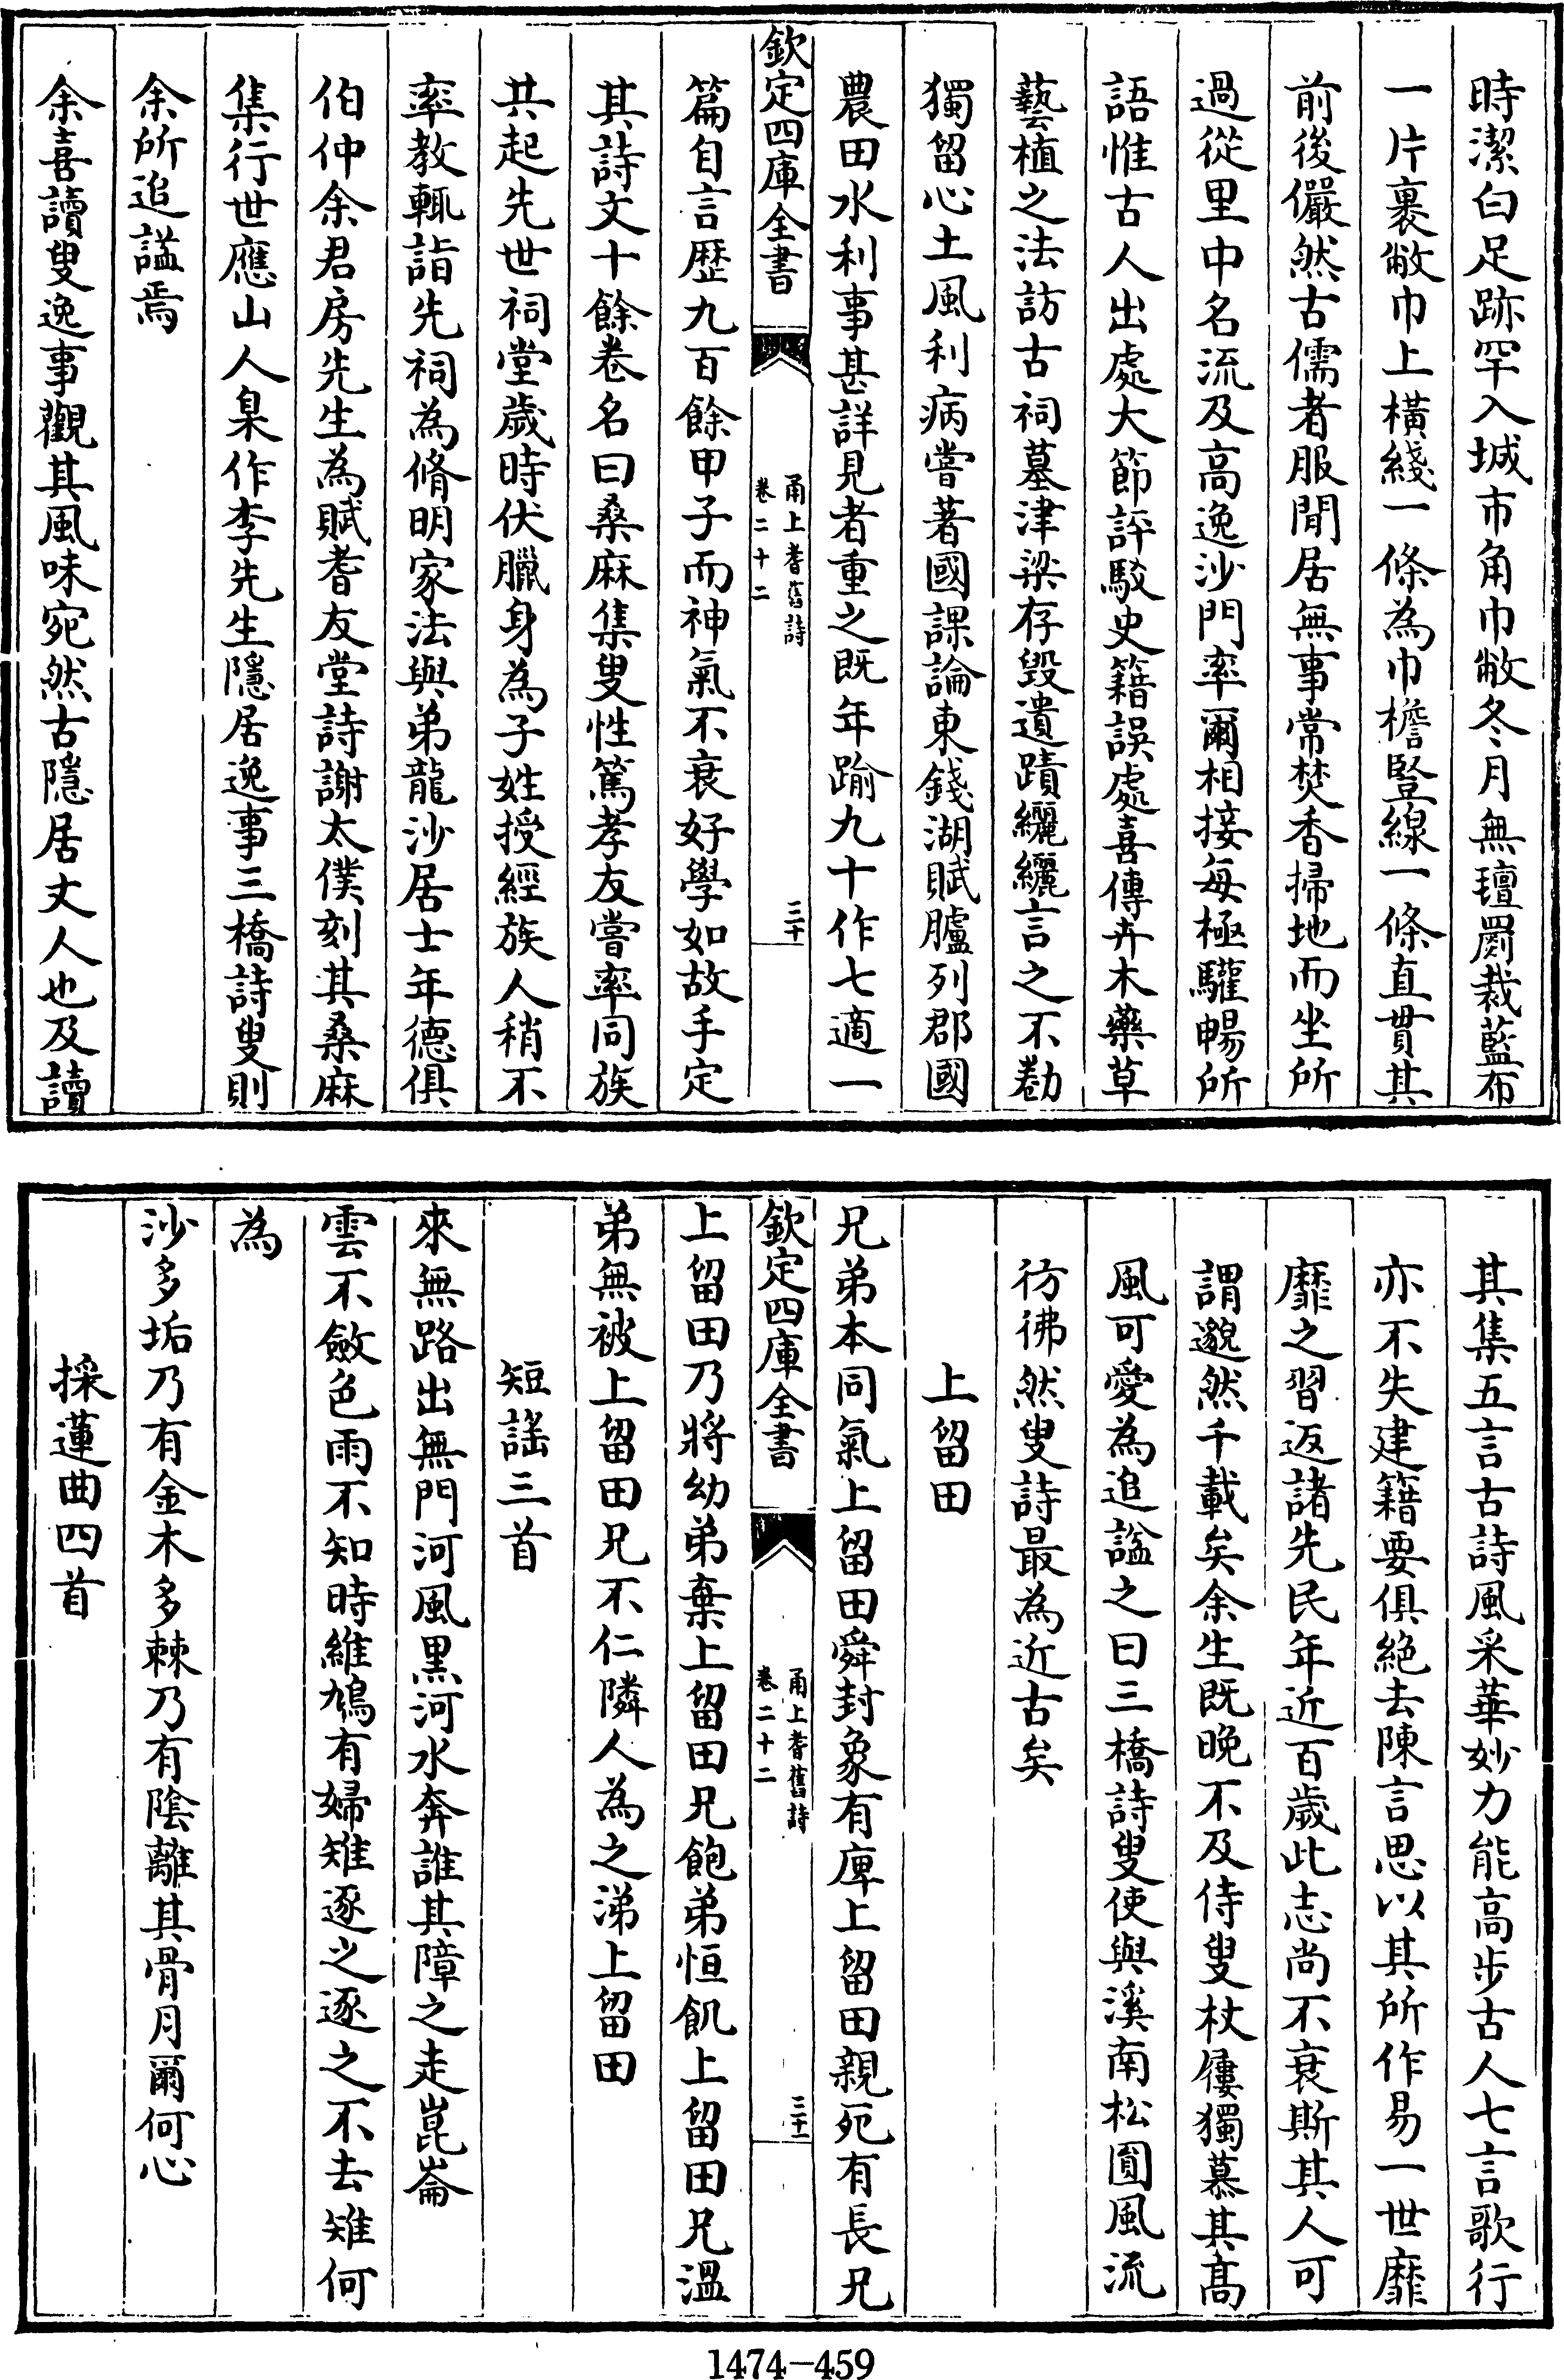 時潔白足跡罕入城市角巾敝冬月無氊罽裁藍布
一片裹敝巾上橫綫一條為巾檐豎線一條直貫其
前後儼然古儒者服閒居無事常焚香掃地而坐所
過從里中名流及高逸沙門率爾相接每極驩暢所
語惟古人出處大節評駁史籍誤處喜傳卉木藥草
藝植之法訪古祠墓津梁存毀遺蹟纚纚言之不勌
獨留心土風利病嘗著國課論東錢湖賦臚列郡國
農田水利事甚詳見者重之既年踰九十作七適一
欽定四庫全書
甬上耆舊詩
卷二十二
三十
篇自言歷九百餘甲子而神氣不衰好學如故手定
其詩文十餘卷名曰桑麻集叟性篤孝友嘗率同族
共起先世祠堂歲時伏臘身為子姓授經族人稍不
率教輒詣先祠為脩明家法與弟龍沙居士年德俱
伯仲余君房先生為賦耆友堂詩謝太僕刻其桑麻
集行世應山人臬作李先生隱居逸事三橋詩叟則
余所追謚焉
余喜讀叟逸事觀其風味宛然古隱居丈人也及讀
其集五言古詩風采華妙力能高步古人七言歌行
亦不失建籍要俱絕去陳言思以其所作易一世靡
靡之習返諸先民年近百歲此志尚不衰斯其人可
謂邈然千載矣余生既晚不及侍叟杖屨獨慕其高
風可愛為追謚之曰三橋詩叟使與溪南松圓風流
彷彿然叟詩最為近古矣
上留田
兄弟本同氣上留田舜封象有庳上留田親死有長兄
欽定四庫全書
甬上耆舊詩
卷二十二
三十一
上留田乃將幼弟棄上留田兄飽弟恒飢上留田兄溫
弟無被上留田兄不仁隣人為之涕上留田
短謠三首
來無路出無門河風黑河水奔誰其障之走崑崙
雲不斂色雨不知時維鳩有婦雉逐之逐之不去雉何
為
沙多垢乃有金木多棘乃有陰離其骨月爾何心
採蓮曲四首
1474-459